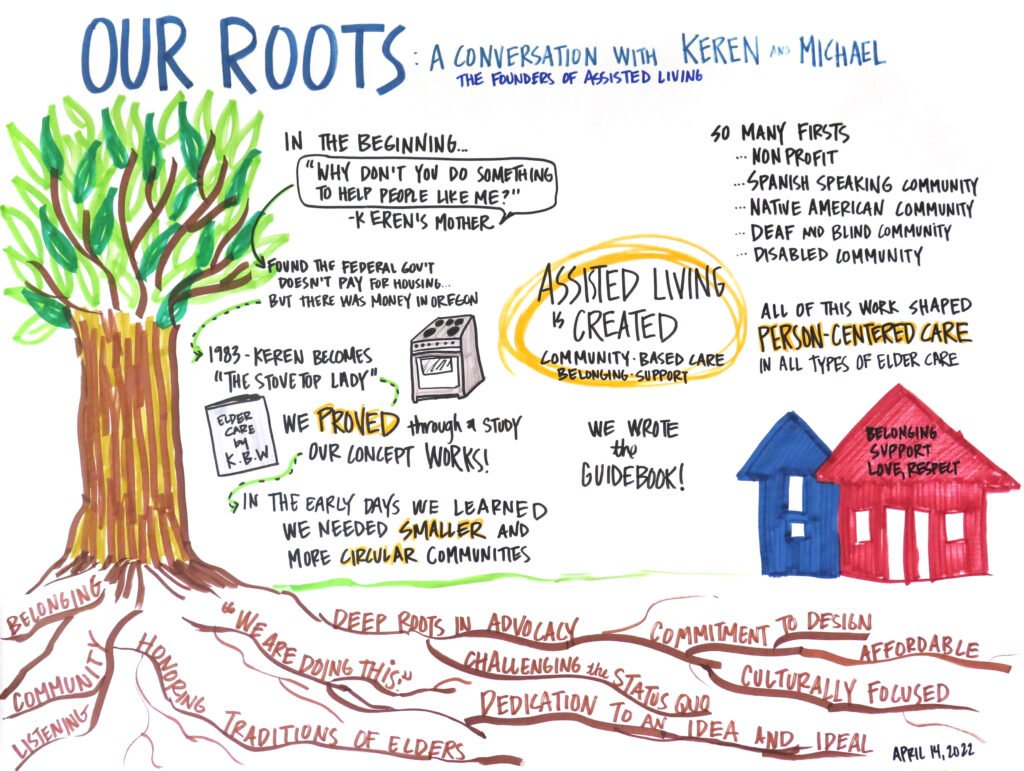 OUR ROOTS: A CONVERSATION WITH KEREN AND MICHAEL
THE FOUNDERS OF ASSISTED LIVING
IN THE BEGINNING...
"WHY DON'T YOU DO SOMETHING
TO HELP PEOPLE LIKE ME?"
-KEREN'S MOTHER
FOUND THE FEDERAL GOV'T
DOESN'T PAY FOR HOUSING...
BUT THERE WAS MONEY IN OREGON
1983-KEREN BECOMES
"THE STOVE TOP LADY"
ELDER
CARE
by
K.B.W
WE PROVED through a STUDY
OUR CONCEPT WORKS!
IN THE EARLY DAYS WE LEARNED
WE NEEDED SMALLER AND
MORE CIRCULAR COMMUNITIES
ASSISTED LIVING
IS CREATED
COMMUNITY·BASED CARE
BELONGING·SUPPORT
WE WROTE
the
GUIDEBOOK!
SO MANY FIRSTS
...NON PROFIT
...SPANISH SPEAKING COMMUNITY
...NATIVE AMERICAN COMMUNITY
...DEAF AND BLIND COMMUNITY
...DISABLED COMMUNITY
ALL OF THIS WORK SHAPED
PERSON-CENTERED CARE
IN ALL TYPES OF ELDER CARE
BELONGING
SUPPORT
LOVE, RESPECT
BELONGING
COMMUNITY
LISTENING
HONORING TRADITIONS OF ELDERS
"WE ARE DOING THIS."
DEEP ROOTS IN ADVOCACY
CHALLENGING the STATUS QUO
DEDICATION TO AN IDEA AND IDEAL
COMMITMENT TO DESIGN
AFFORDABLE
CULTURALLY FOCUSED
APRIL 14, 2022